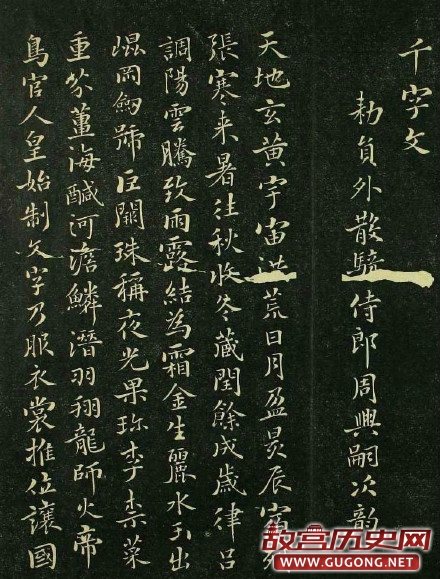 千字文
勑員外散騎侍郎周興嗣次韵
天地玄黃宇宙洪荒日月盈昃辰宿列
張寒来暑往秋收冬藏閏餘成歲律呂
調陽雲騰致雨露結為霜金生麗水玉出
崐岡劒號巨闕珠稱夜光果珎李柰菜
重芥薑海醎河淡鱗潛羽翔龍師火帝
鳥官人皇始制文字乃服衣裳推位讓國
故宫历史网
WWW.GUGONG.NET